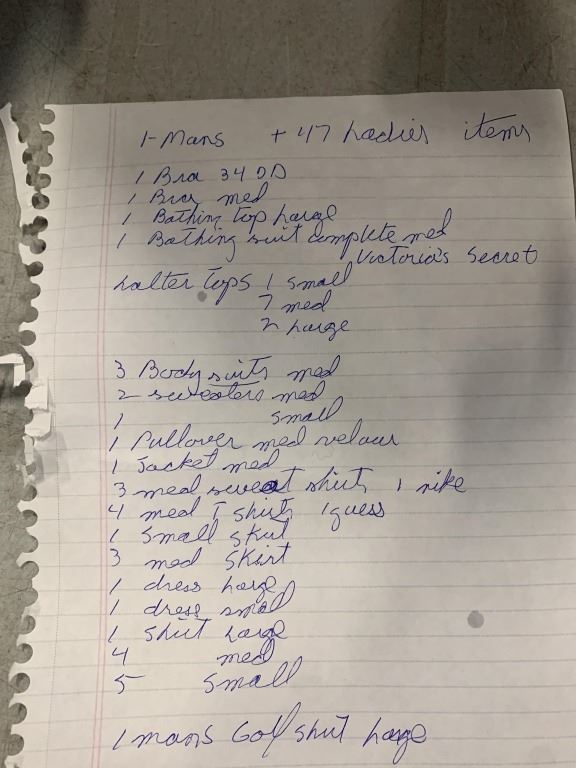 1-Mans + 47 Ladies items
1 Bra 34 DD
1 Bra med
1 Bathing top large
1 Bathing suit complete med
Victoria's Secret
halter tops 1 small
7 med
2 large
3 Body suits med
2 sweaters med
1 small
1 Pullover med velour
1 Jacket med
3 med sweat shirts 1 nike
4 med T shirts 1 guess
1 small skirt
3 med skirt
1 dress large
1 dress small
1 shirt large
4 med
5 small
1 mans Golf shirt large